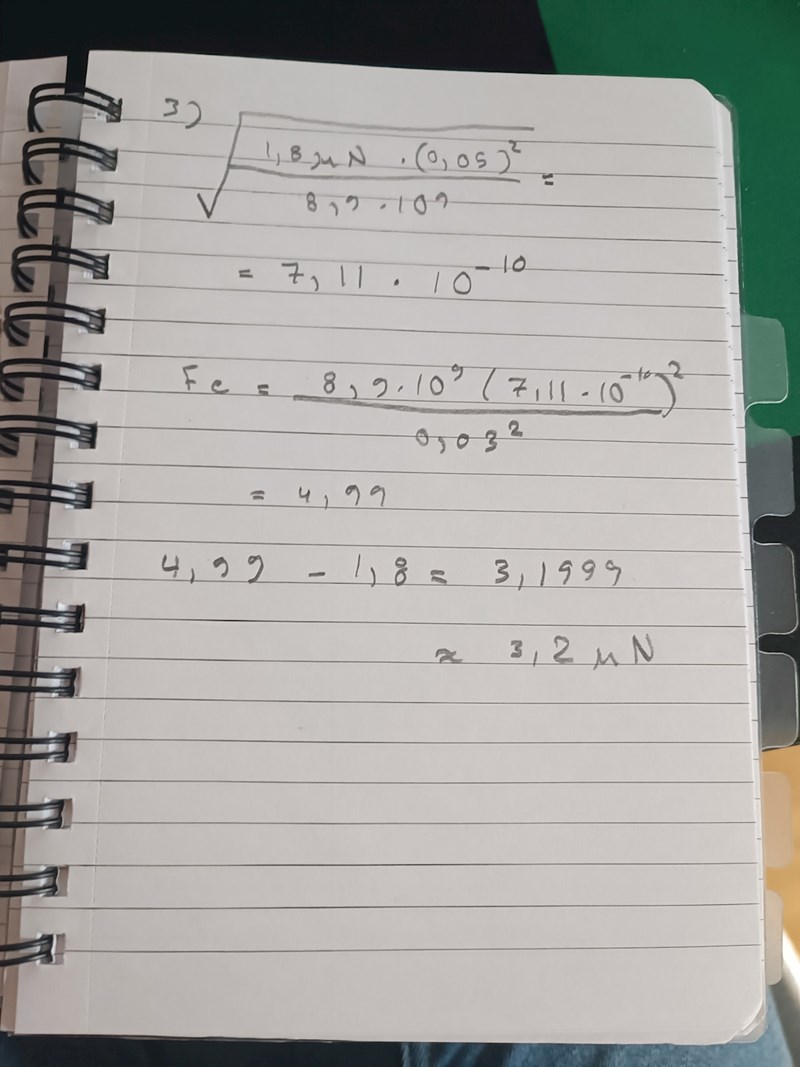 3) √(1,8 μN · (0,05)² / 8,9 · 10⁹) =
= 7,11 · 10⁻¹⁰
Fe = 8,9 · 10⁹ (7,11 · 10⁻¹⁰)² / 0,03²
= 4,99
4,99 - 1,8 = 3,1999
≈ 3,2 μN